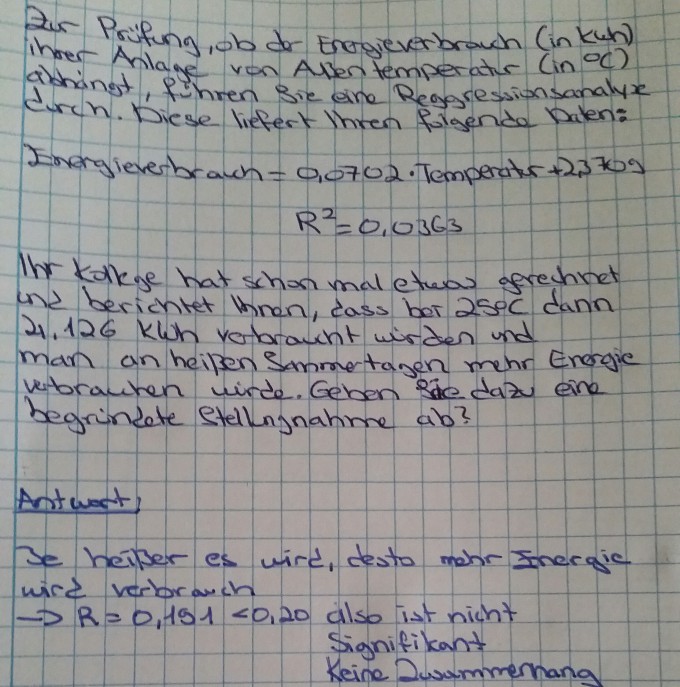 Zur Prüfung, ob der Energieverbrauch (in kWh)
ihrer Anlage von Außentemperatur (in °C)
abhängt, führen Sie eine Reggressionsanalyse
durch. Diese liefert Ihnen folgende Daten:
Energieverbrauch = 0,0702 · Temperatur + 2,3709
R² = 0,0363
Ihr Kollege hat schon mal etwas gerechnet
und berichtet Ihnen, dass bei 25°C dann
4,126 kWh verbraucht würden und
man an heißen Sommertagen mehr Energie
verbrauchen würde. Geben Sie dazu eine
begründete Stellungnahme ab?
Antwort,
Je heißer es wird, desto mehr Energie
wird verbrauch
-> R = 0,191 < 0,20 also ist nicht
Signifikant
Keine Zusammenhang